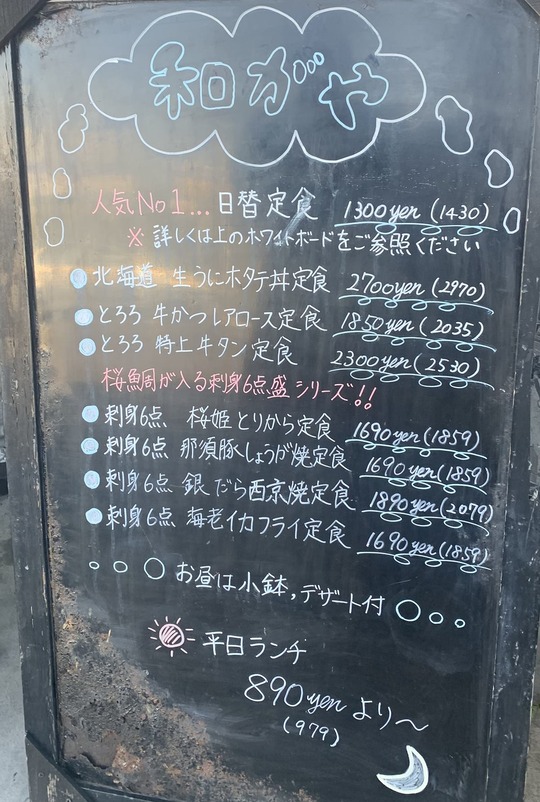 和がや
人気No1...日替定食 1300yen(1430)
※詳しくは上のホワイトボードをご参照ください
●北海道 生うにホタテ丼定食 2700yen(2970)
●とろろ 牛かつレアロース定食 1850yen(2035)
●とろろ 特上牛タン定食 2300yen(2530)
桜鯛が入る刺身6点盛シリーズ!!
●刺身6点 桜姫とりから定食 1690yen(1859)
●刺身6点 那須豚しょうが焼定食 1690yen(1859)
●刺身6点 銀だら西京焼定食 1890yen(2079)
●刺身6点 海老イカフライ定食 1690yen(1859)
○○○お昼は小鉢,デザート付○○○
平日ランチ
890yenより〜
(979)